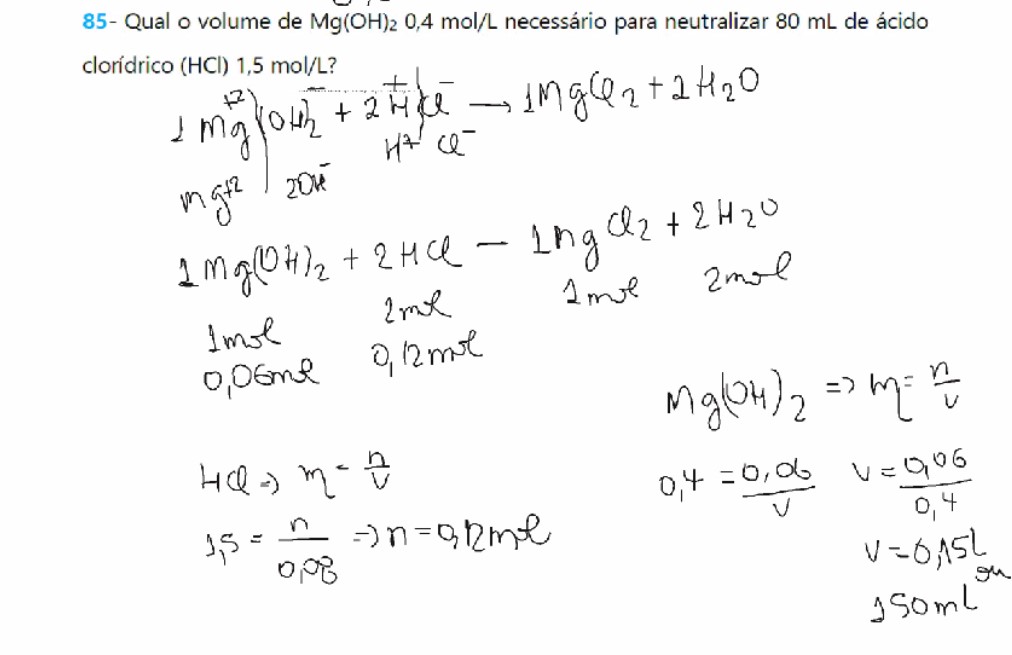 85- Qual o volume de Mg(OH)₂ 0,4 mol/L necessário para neutralizar 80 mL de ácido
clorídrico (HCl) 1,5 mol/L?
1 Mg⁺²(OH)₂⁻ + 2 H⁺Cl⁻ → 1MgCl₂ + 2H₂O
H⁺ Cl⁻
Mg⁺² 2OH⁻
1Mg(OH)₂ + 2HCl — 1MgCl₂ + 2H₂O
1mol 2mol 1mol 2mol
0,06mol 0,12mol
Mg(OH)₂ => M = n/V
HCl => M = n/V
0,4 = 0,06/V V = 0,06/0,4
1,5 = n/0,08 => n = 0,12mol
V = 0,15L
ou
150mL